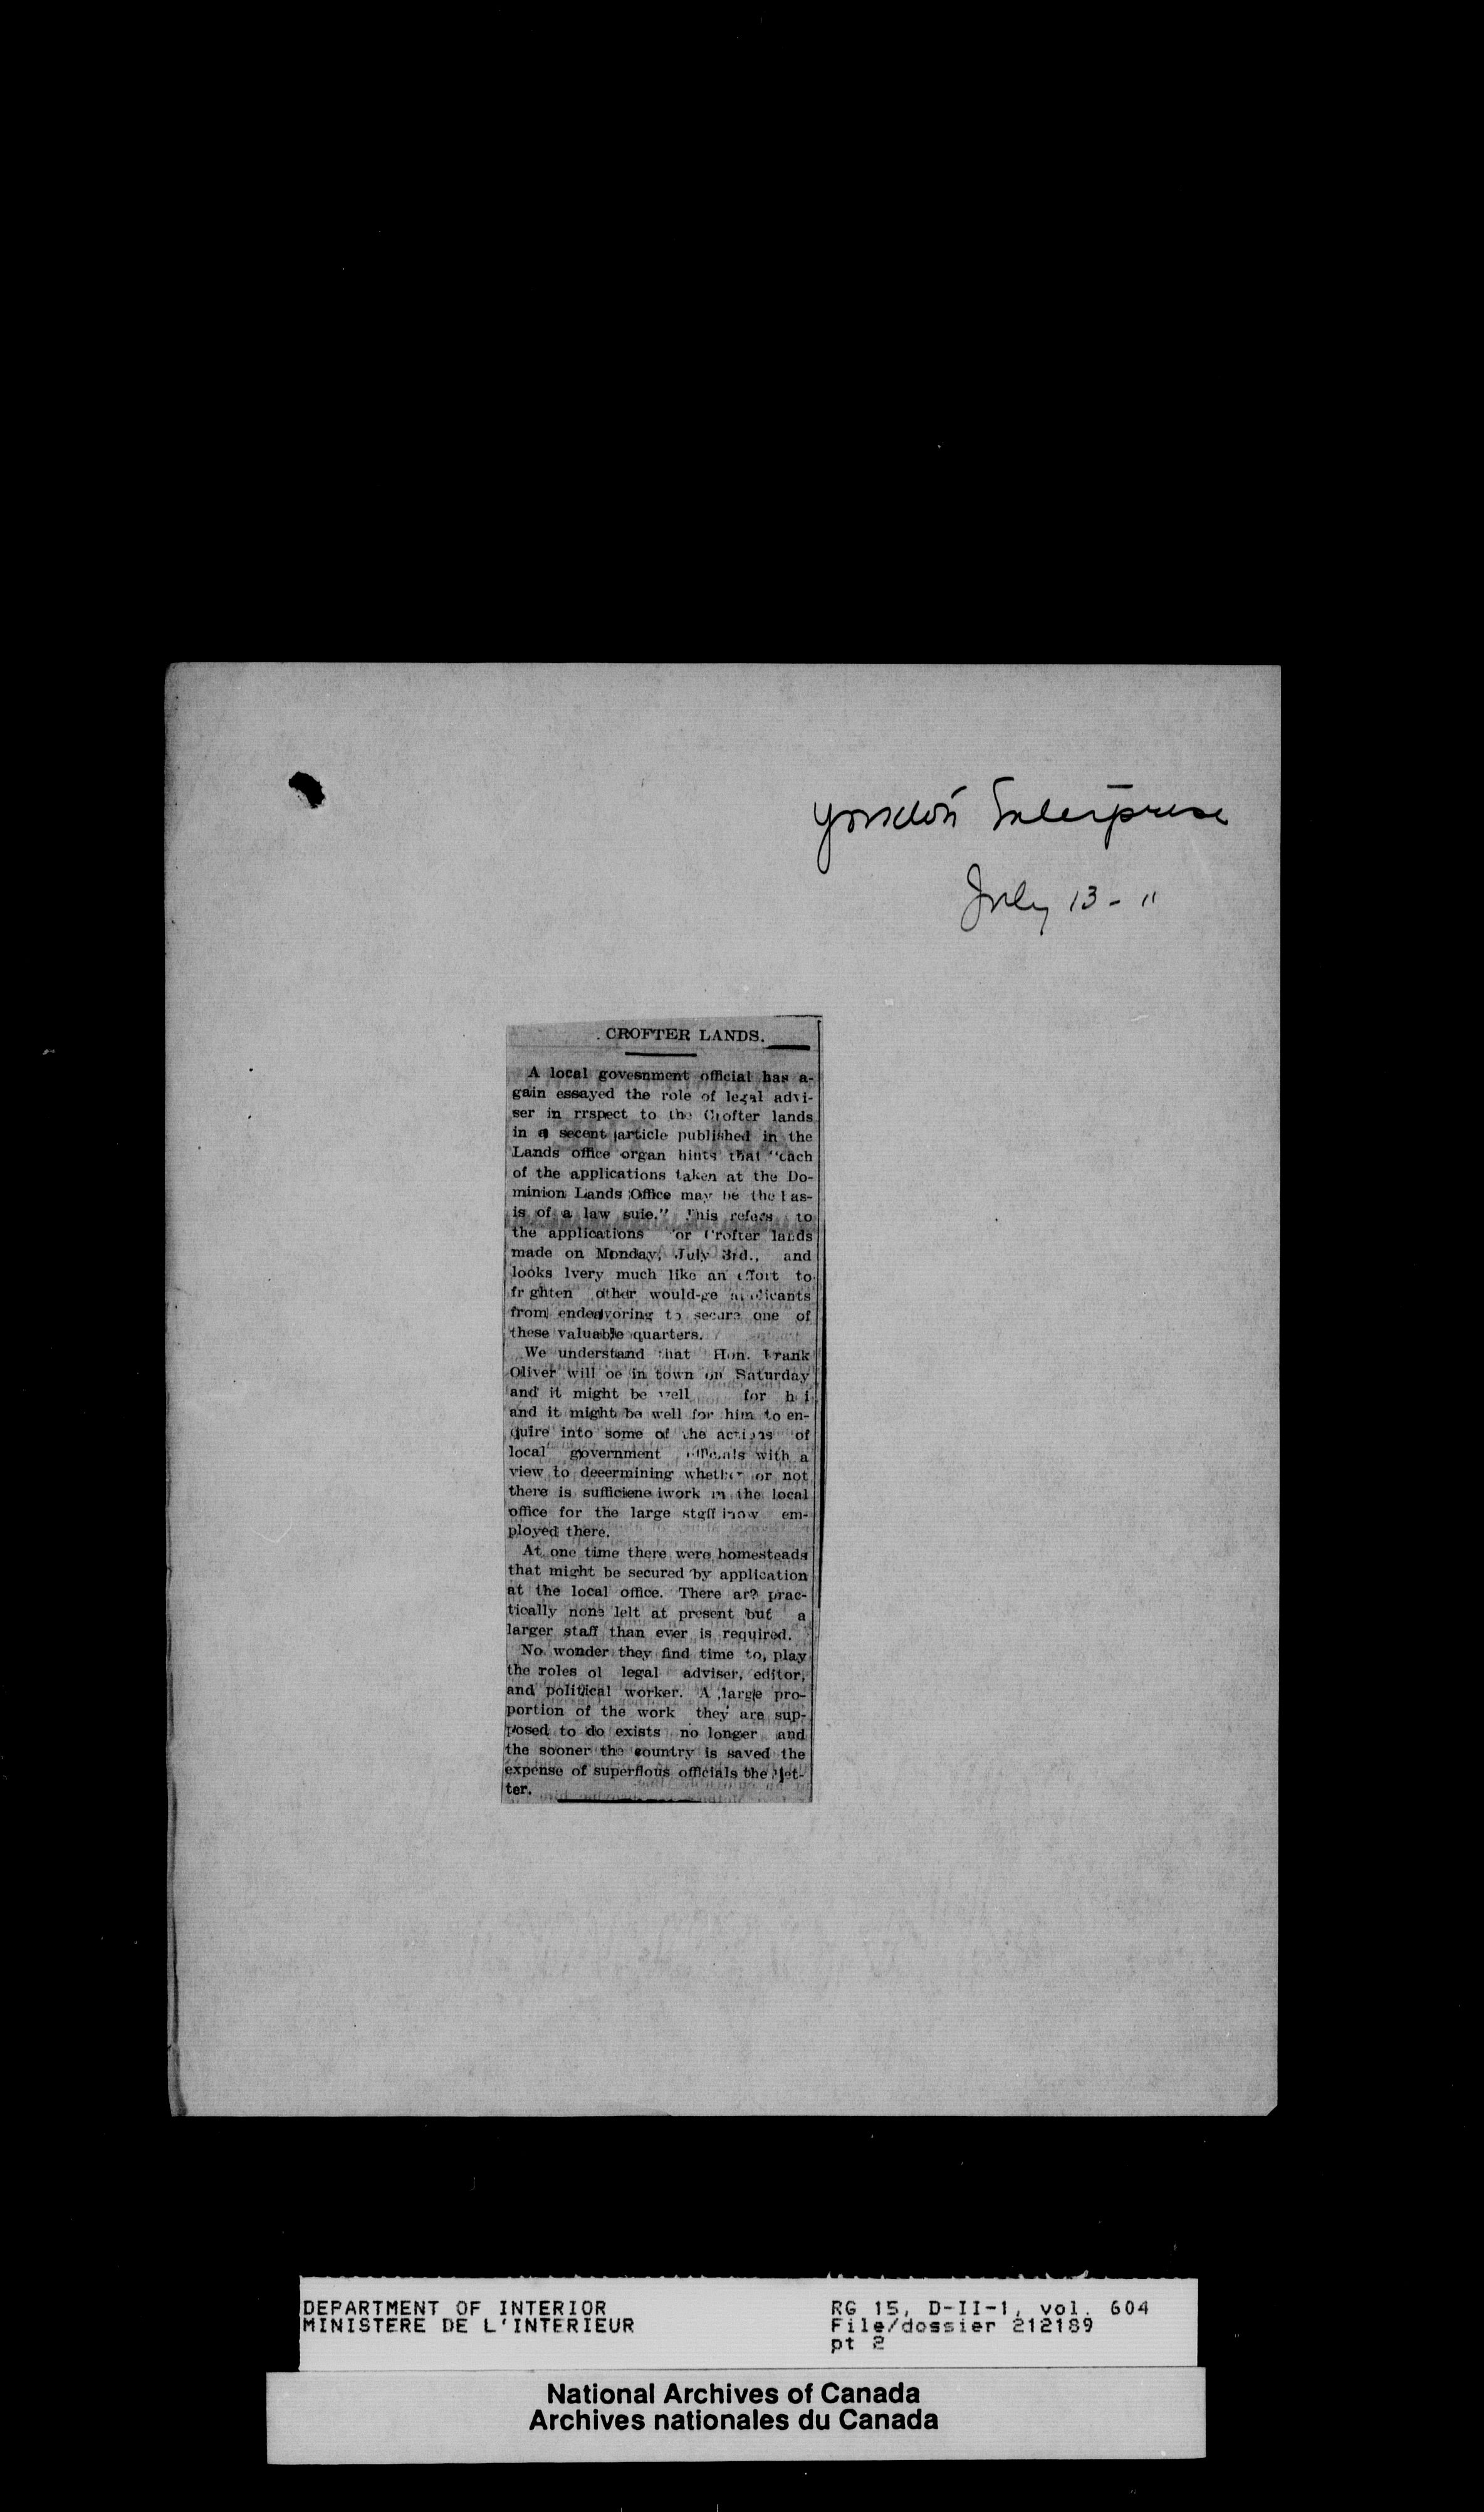 Yorkton Enterprise
July 13 - 11
. CROFTER LANDS.
A local govesnment official has a-
gain essayed the role of legal advi-
ser in rrspect to the Crofter lands
in a secent article published in the
Lands office organ hints that "each
of the applications taken at the Do-
minion Lands Office may be the bas-
is of a law suie." This refers to
the applications for Crofter lands
made on Monday, July 3rd., and
looks lvery much like an effort to
fr ghten other would-ge applicants
from endeavoring to secure one of
these valuable quarters.
We understand that Hon. Frank
Oliver will be in town on Saturday
and it might be well for h i
and it might be well for him to en-
quire into some of the actions of
local government officials with a
view to deeermining whether or not
there is sufficiene iwork in the local
office for the large staff inow em-
ployed there.
At one time there were homesteads
that might be secured by application
at the local office. There ar? prac-
tically none lelt at present but a
larger staff than ever is required.
No wonder they find time to, play
the roles ol legal adviser, editor,
and political worker. A large pro-
portion of the work they are sup-
posed to do exists no longer and
the sooner the country is saved the
expense of superflous officials the bet-
ter.
DEPARTMENT OF INTERIOR
MINISTERE DE L'INTERIEUR
RG 15, D-II-1, vol. 604
File/dossier 212189
pt 2
National Archives of Canada
Archives nationales du Canada